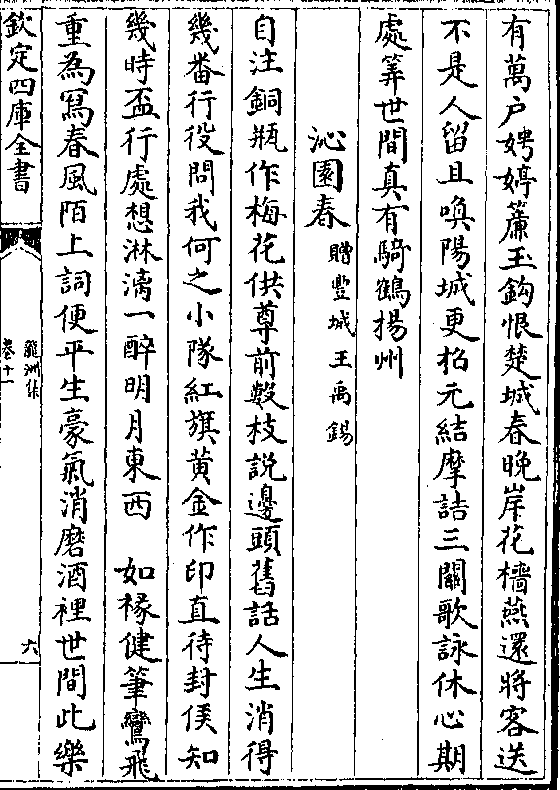 有萬户娉婷簾玉鈎恨楚城春晚岸花檣燕還將客送
不是人留且喚陽城更招元結摩詰三關歌詠休心期
處筭世間真有騎鶴揚州
沁園春 贈豐城王禹錫
自注銅瓶作梅花供尊前數枝説邊頭舊話人生消得
幾番行役問我何之小隊紅旗黄金作印直待封侯知
幾時盃行處想淋漓一醉明月東西　如椽健筆鸞飛
重為冩春風陌上詞便平生豪氣消磨酒裡世間此樂
欽定四庫全書
龍洲集
卷十一
六